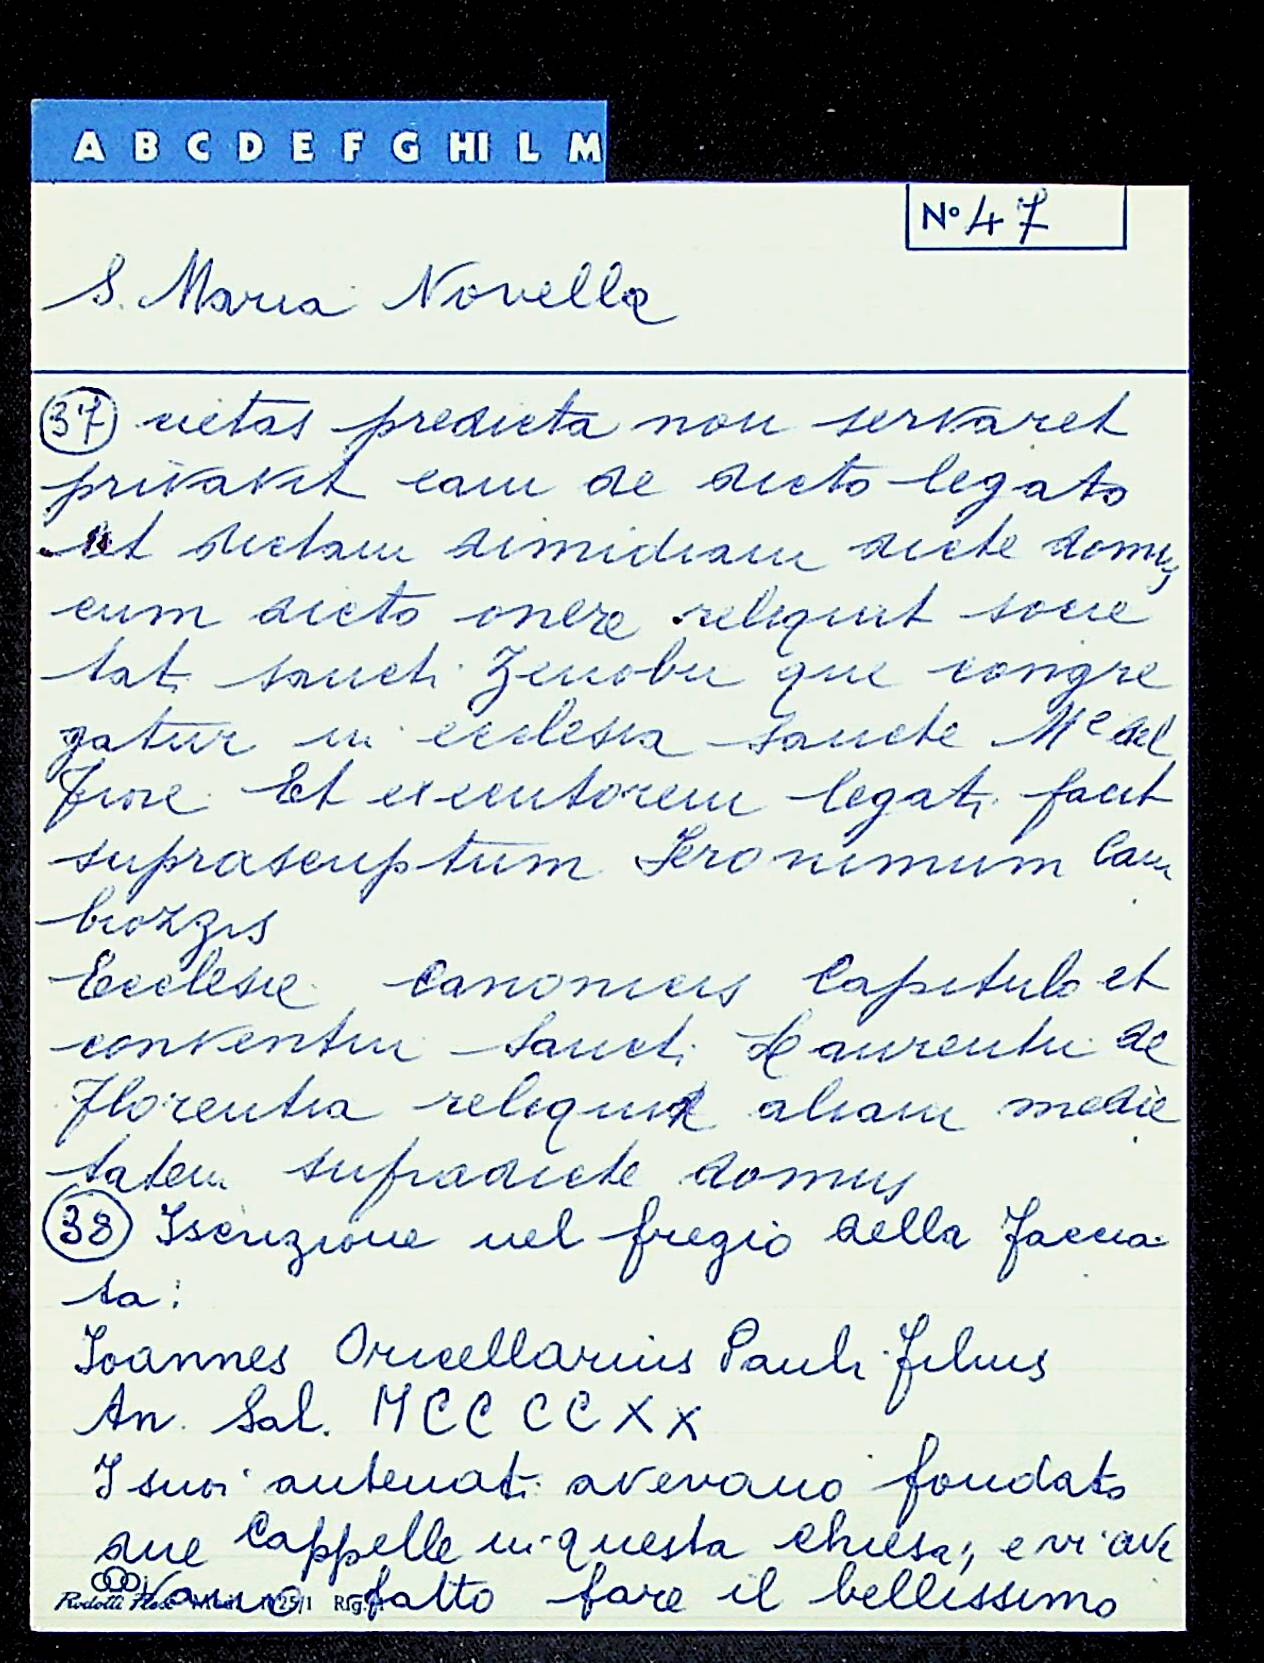 A B C D E F G HI L M
Nº 47
S. Maria Novella
37 cietas predicta non servaret
privavit eam de dicto legato
et dictam dimidiam dicte domus
cum dicto onere reliquit socie
tati sancti Zenobii que congre
gatur in ecclesia sancte Me del
Fiore. Et executorem legati facit
suprascriptum Jeronimum Cam
biozzis
Ecclesie canonicis Capitulo et
conventui Sancti Laurentii de
Florentia reliquit aliam medie
tatem supradicte domus
38 Iscrizione nel fregio della Faccia
ta:
Ioannes Oricellarius Pauli Filius
An. Sal. MCCCCXX
I suoi antenati avevano fondato
due Cappelle in questa chiesa, e vi ave
vano fatto fare il bellissimo